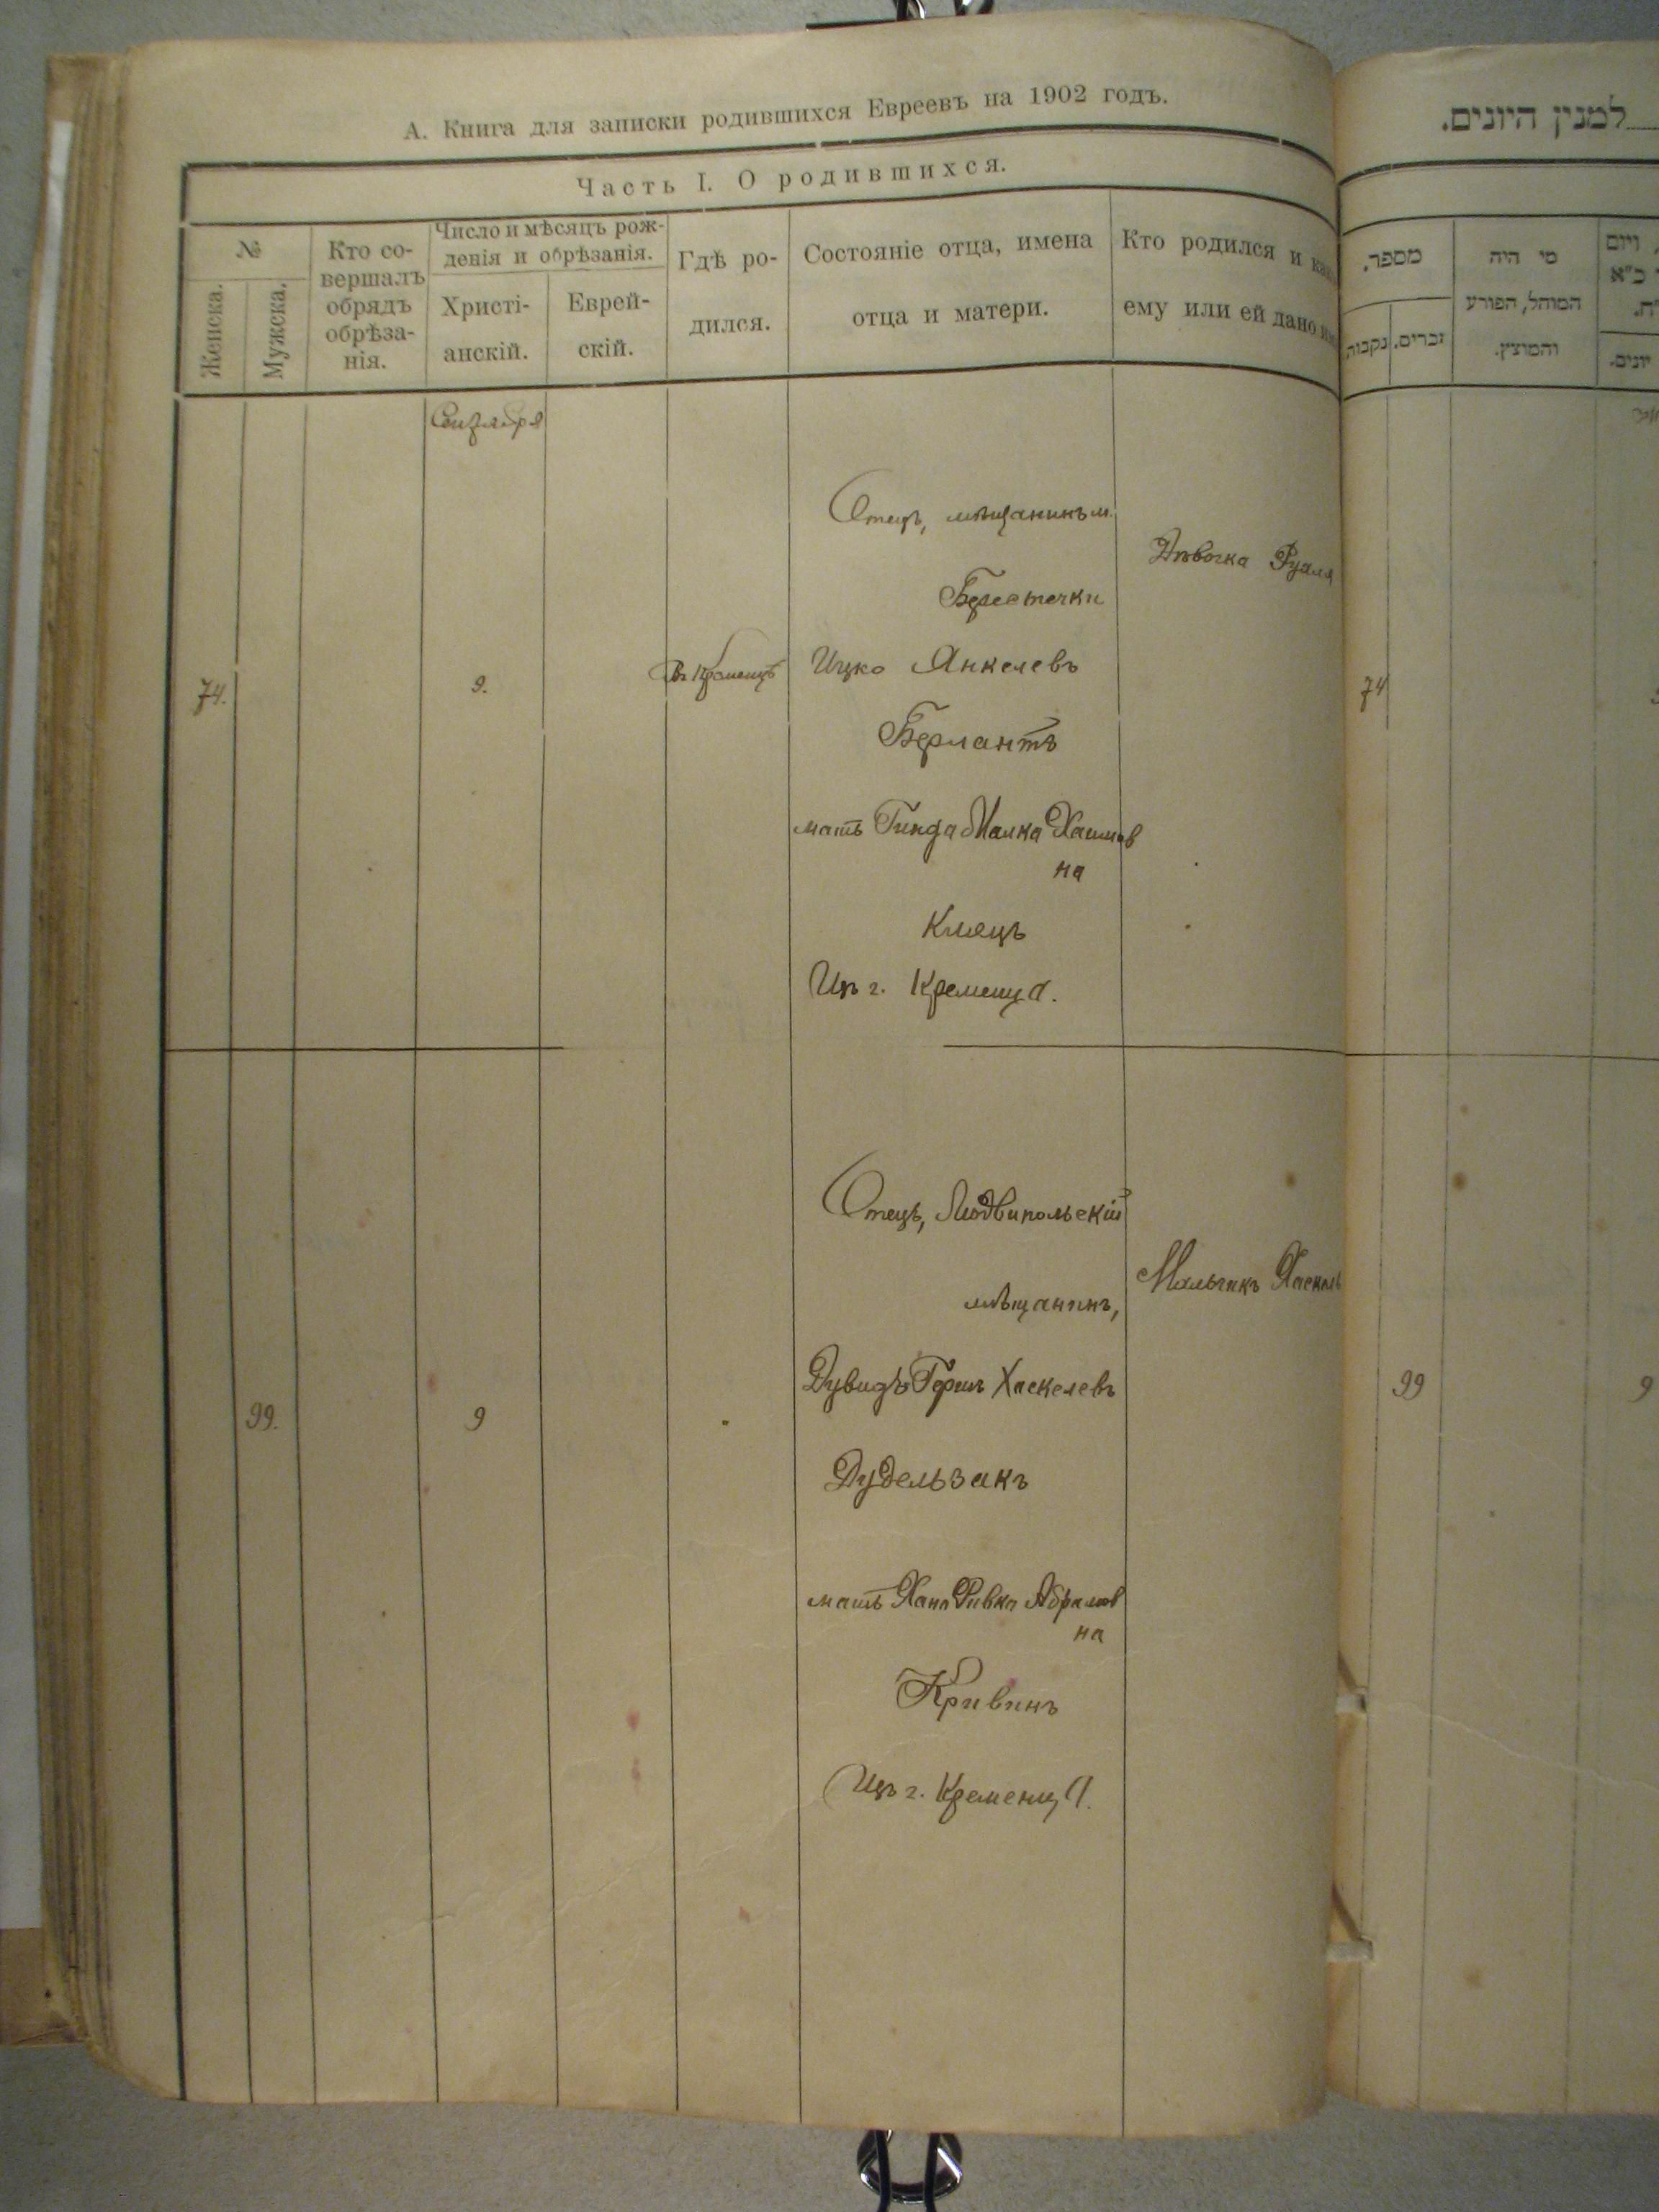 А. Книга для записки родившихся Евреевъ на 1902 годъ.
Часть I. О родившихся.
№
Женска.
Мужска.
Кто со-
вершалъ
обрядъ
обрѣза-
нія.
Число и мѣсяцъ рож-
денія и обрѣзанія.
Христі-
анскій.
Еврей-
скій.
Гдѣ ро-
дился.
Состояніе отца, имена
отца и матери.
Кто родился и
ему или ей дано
Сентября
74.
9.
Въ Кременцѣ
Отецъ, мѣщанинъ м.
Берестечки
Ицко Янкелевъ
Берлантъ
мать Гинда Малка Хаимов
на
Клецъ
Изъ г. Кременца.
Дѣвочка
99.
9
Отецъ, Людвипольскій
мѣщанинъ,
Дувидъ Герш Хаскелевъ
Дудельзакъ
мать Хана Ривка Абрамов
на
Кривинъ
Изъ г. Кременца.
Мальчикъ Хаскель
למנין היונים.
מספר.
נקבות.
זכרים.
מי היה
המוהל, הפורע
והמוצץ.
ויום
כ״א
יונים.
74
99
9